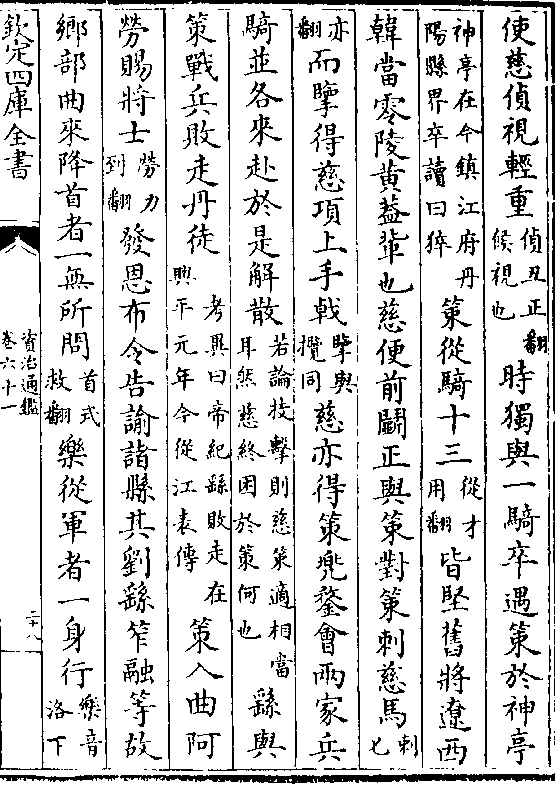 使慈偵視輕重偵丑正翻候視也時獨與一騎卒遇策於神亭
神亭在今鎮江府丹陽縣界卒讀曰猝策從騎十三從才用翻皆堅舊將遼西
韓當零陵黃蓋輩也慈便前鬬正與策對策刺慈馬刺七
亦翻而擥得慈項上手戟擥與攬同慈亦得策兜鍪會兩家兵
騎並各來赴於是解散若論技擊則慈策適相當耳然慈終困於策何也繇與
策戰兵敗走丹徒考異曰帝紀繇敗走在興平元年今從江表傳策入曲阿
勞賜將士勞力到翻發恩布令告諭諸縣其劉繇笮融等故
鄉部曲來降首者一無所問首式救翻樂從軍者一身行樂音洛下
欽定四庫全書
資治通鑑
卷六十一
二十八